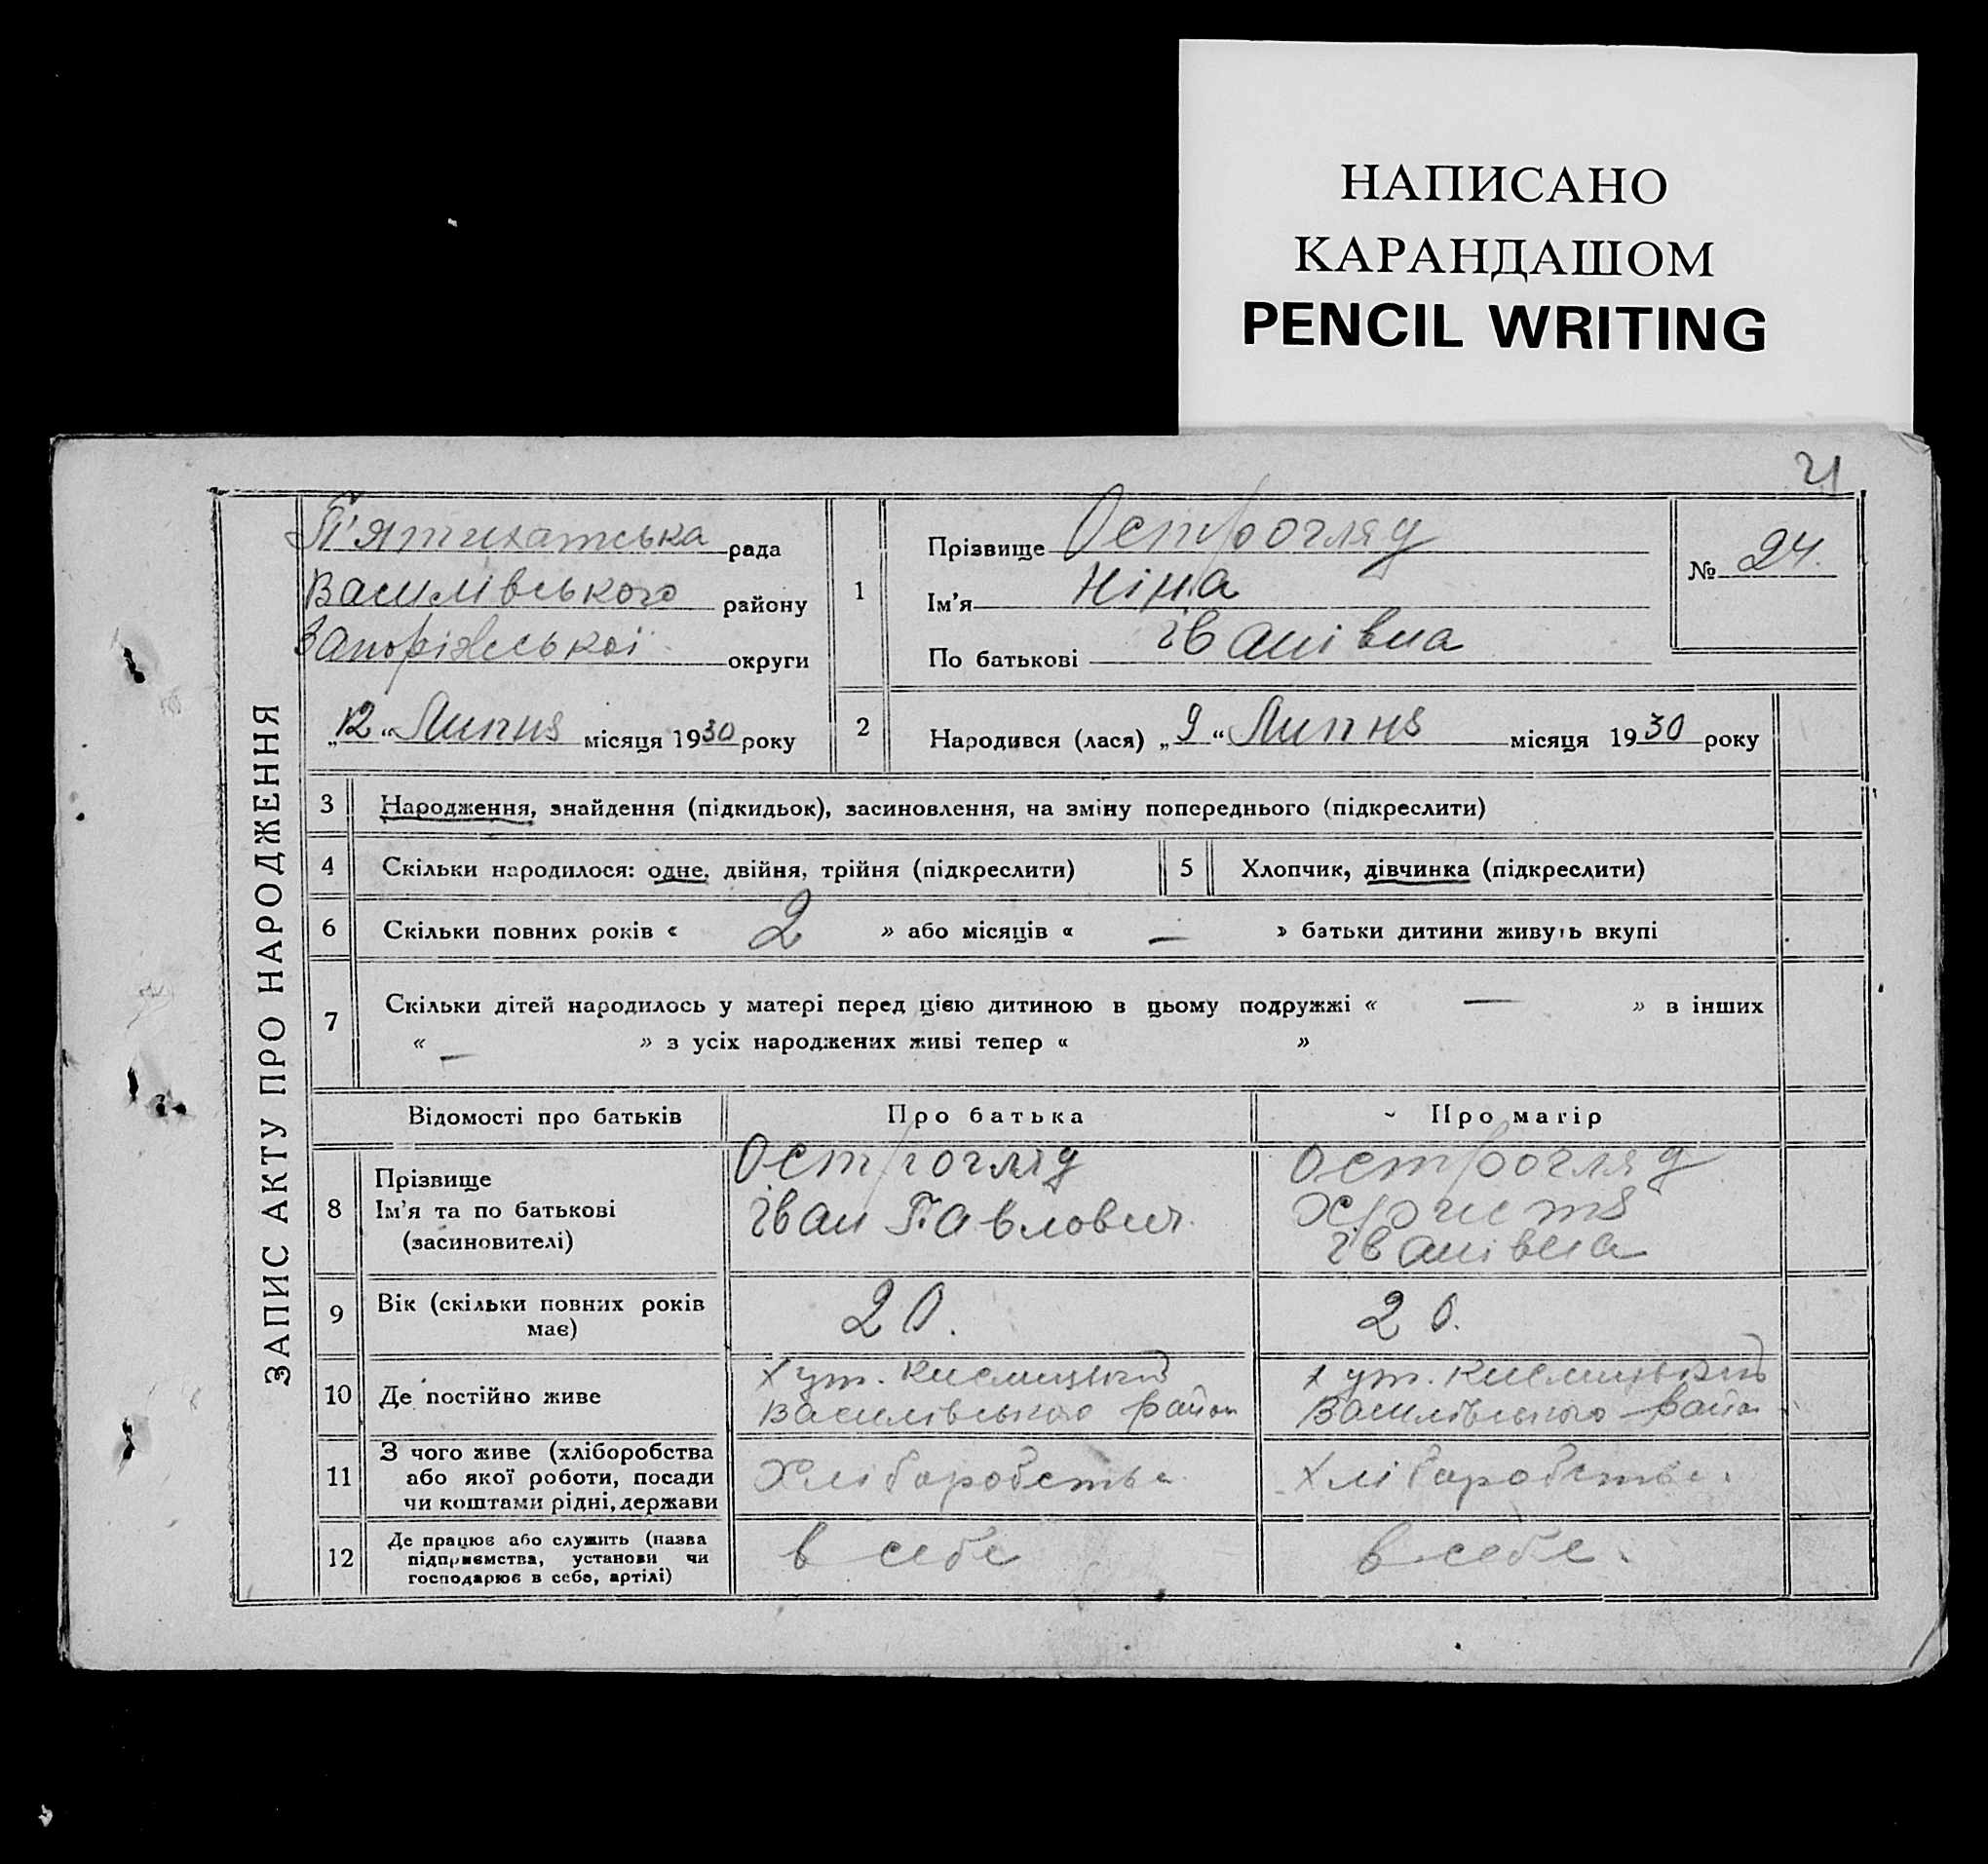 НАПИСАНО
КАРАНДАШОМ
PENCIL WRITING
21
ЗАПИС АКТУ ПРО НАРОДЖЕННЯ
П'ятихатська рада
Василівського району
Запоріжської округи
„12“ Липня місяця 1930 року
1
Прізвище Острогляд
Ім'я Ніна
По батькові Іванівна
№ 24.
2
Народився (лася) „9“ Липня місяця 1930 року
3 Народження, знайдення (підкидьок), засиновлення, на зміну попереднього (підкреслити)
4 Скільки народилося: одне, двійня, трійня (підкреслити)
5 Хлопчик, дівчинка (підкреслити)
6 Скільки повних років « 2 » або місяців « — » батьки дитини живуть вкупі
7 Скільки дітей народилось у матері перед цією дитиною в цьому подружжі « — » в інших
« — » з усіх народжених живі тепер « »
Відомості про батьків
Про батька
Про матір
8
Прізвище
Ім'я та по батькові
(засиновителі)
Острогляд
Іван Павлович
Острогляд
Христя
Іванівна
9
Вік (скільки повних років
має)
20.
20.
10 Де постійно живе
Хут.
Василівського район
Хут.
Василівського район
11
З чого живе (хліборобства
або якої роботи, посади
чи коштами рідні, держави
Хліборобства
Хліборобства.
12
Де працює або служить (назва
підприємства, установи чи
господарює в себе, артілі)
в себе
в себе.